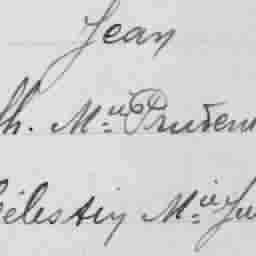 Jean
th. Mie Pruden
Célestin Mie Ju